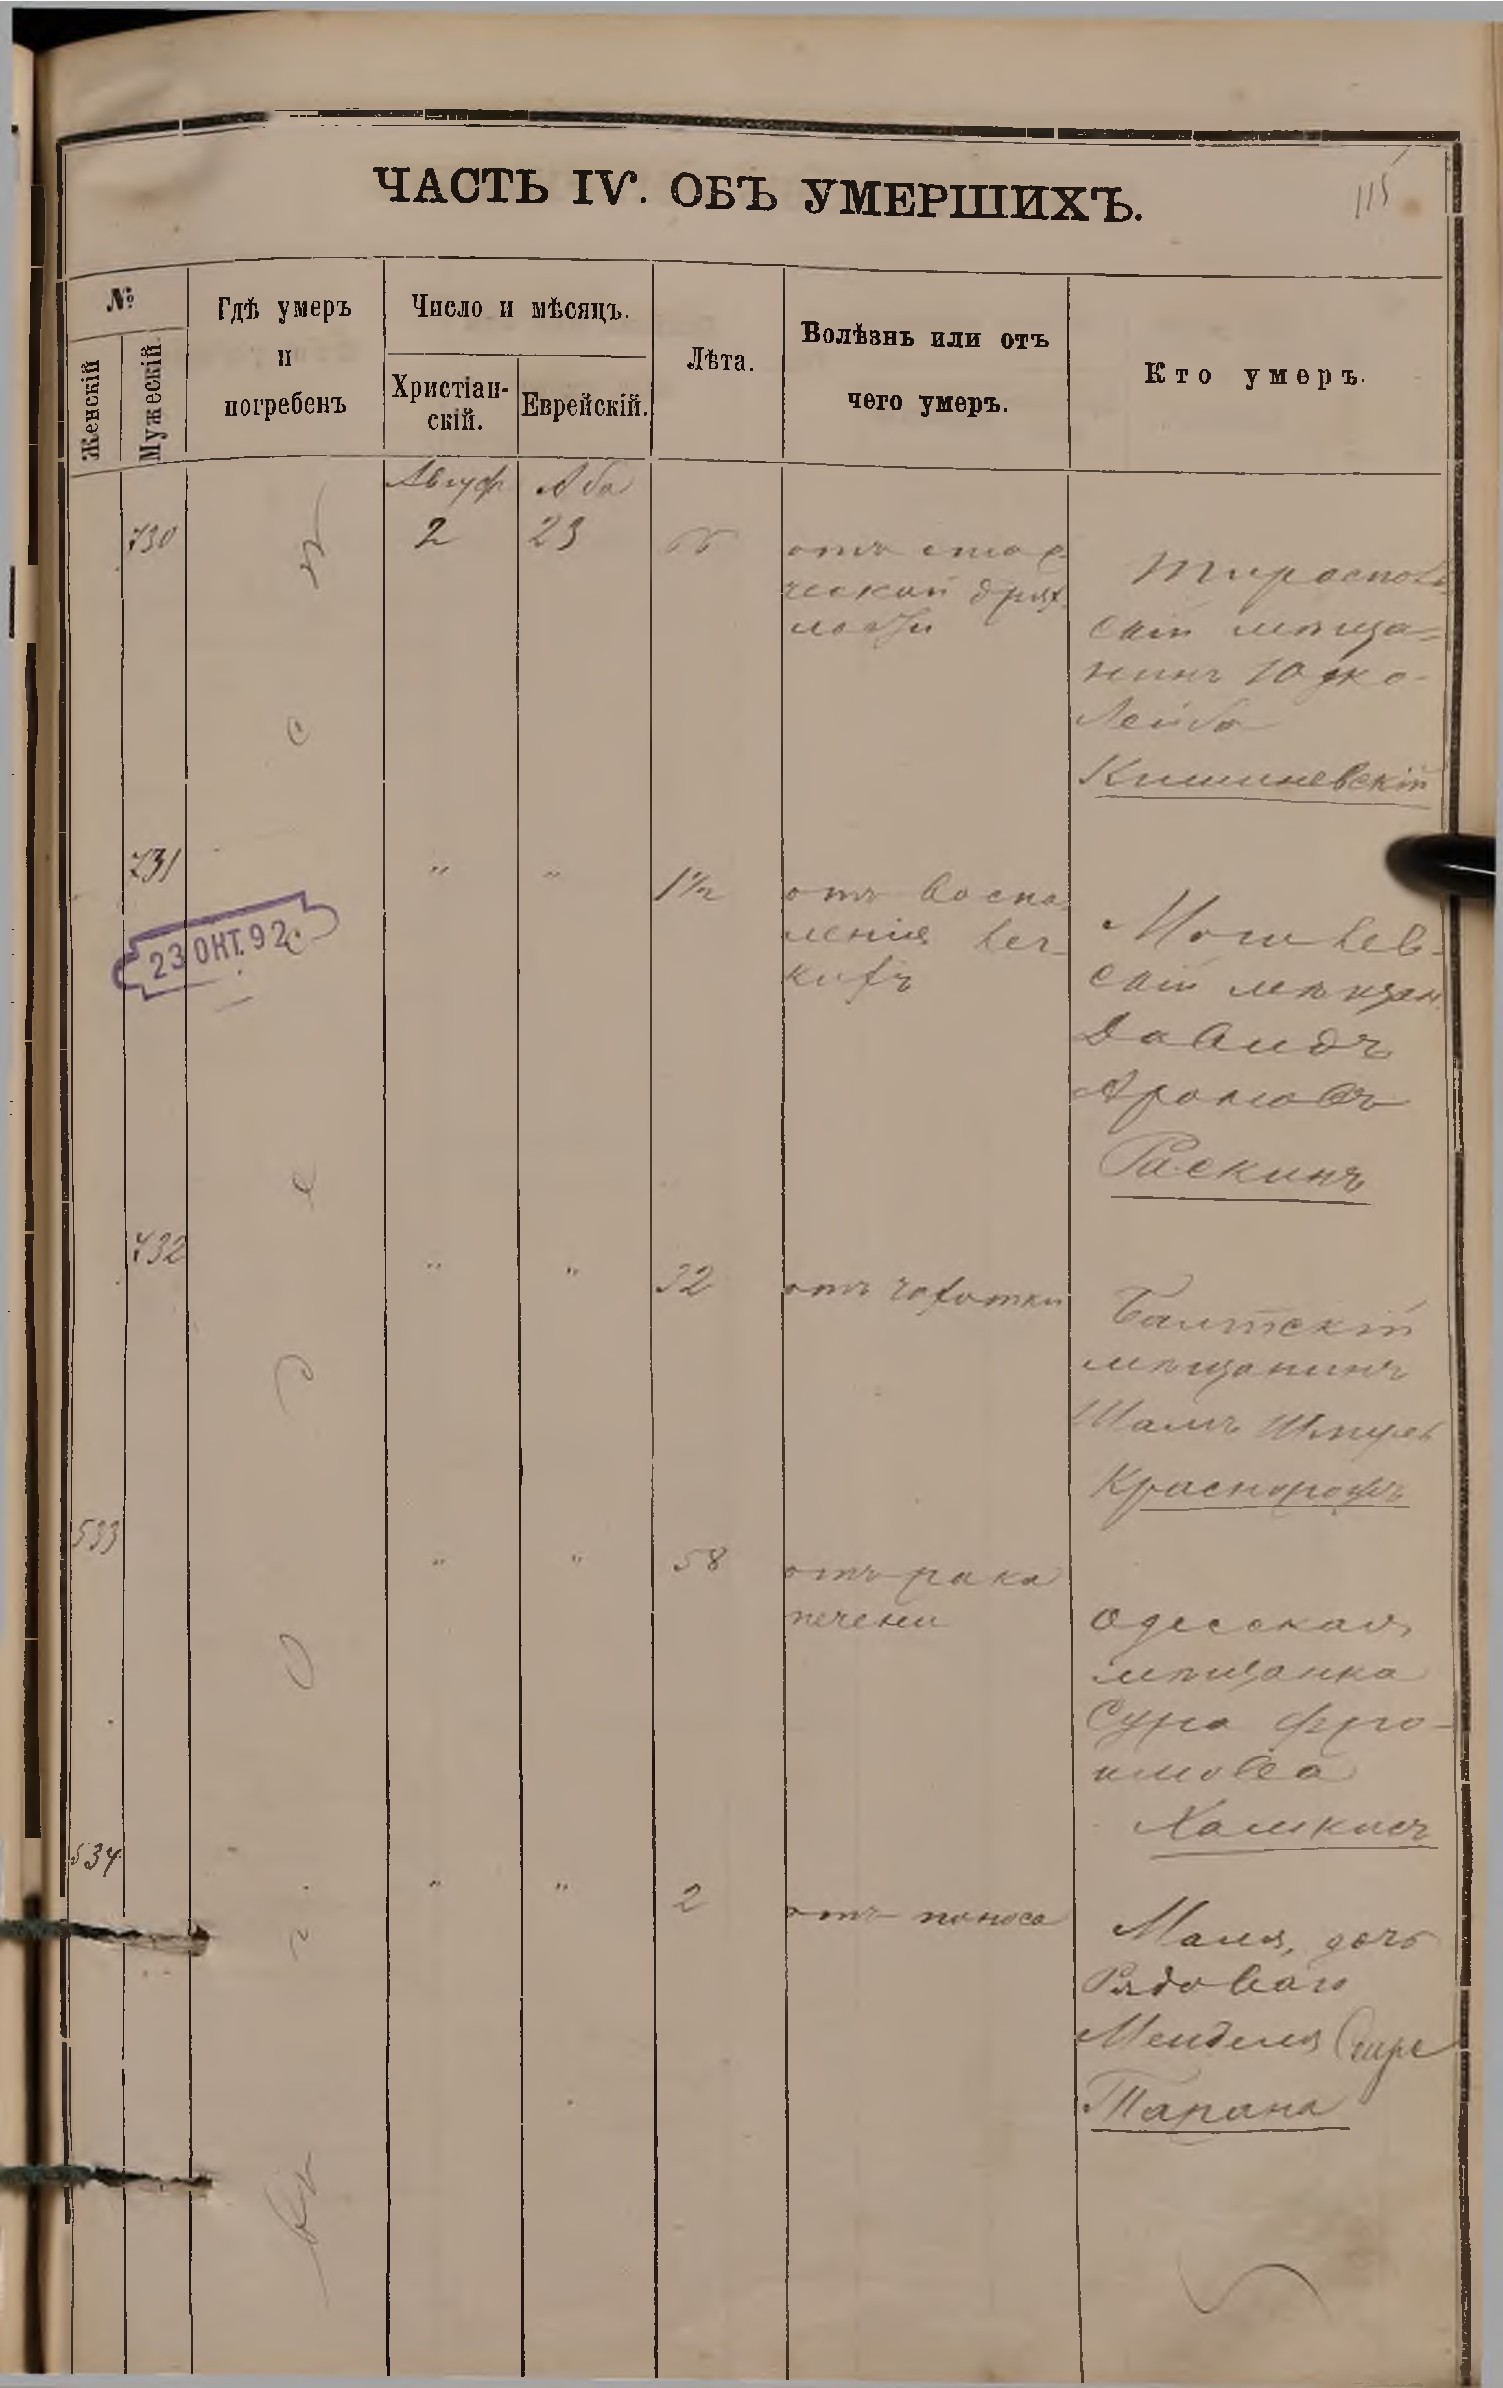 ЧАСТЬ IV. ОБЪ УМЕРШИХЪ.
115
№
Женскій
Мужескій
Гдѣ умеръ
и
погребенъ
Число и мѣсяцъ.
Христіан-
скій.
Еврейскій.
Лѣта.
Болѣзнь или отъ
чего умеръ.
Кто умеръ.
въ г. Одессѣ
Август Аба
730 2 23 66 отъ стар-
ческой дрях-
лости
Тирасполь-
скій мѣща-
нинъ Юдко-
Лейба
Кишиневскій
731 " " 1½ отъ воспа-
ленія лег-
кихъ
23 ОКТ. 92
Могилев-
скій мѣщан
Давидъ
Ароновъ
Раскинъ
732 " " 32 отъ чахотки
Балтскій
мѣщанинъ
Шлима Шмул
533 " " 58 отъ рака
печени
Одесская
мѣщанка
Сура Фро-
имова
534 " " 2 отъ поноса
Маля, дочь
Рядоваго
Менделя
Тарана